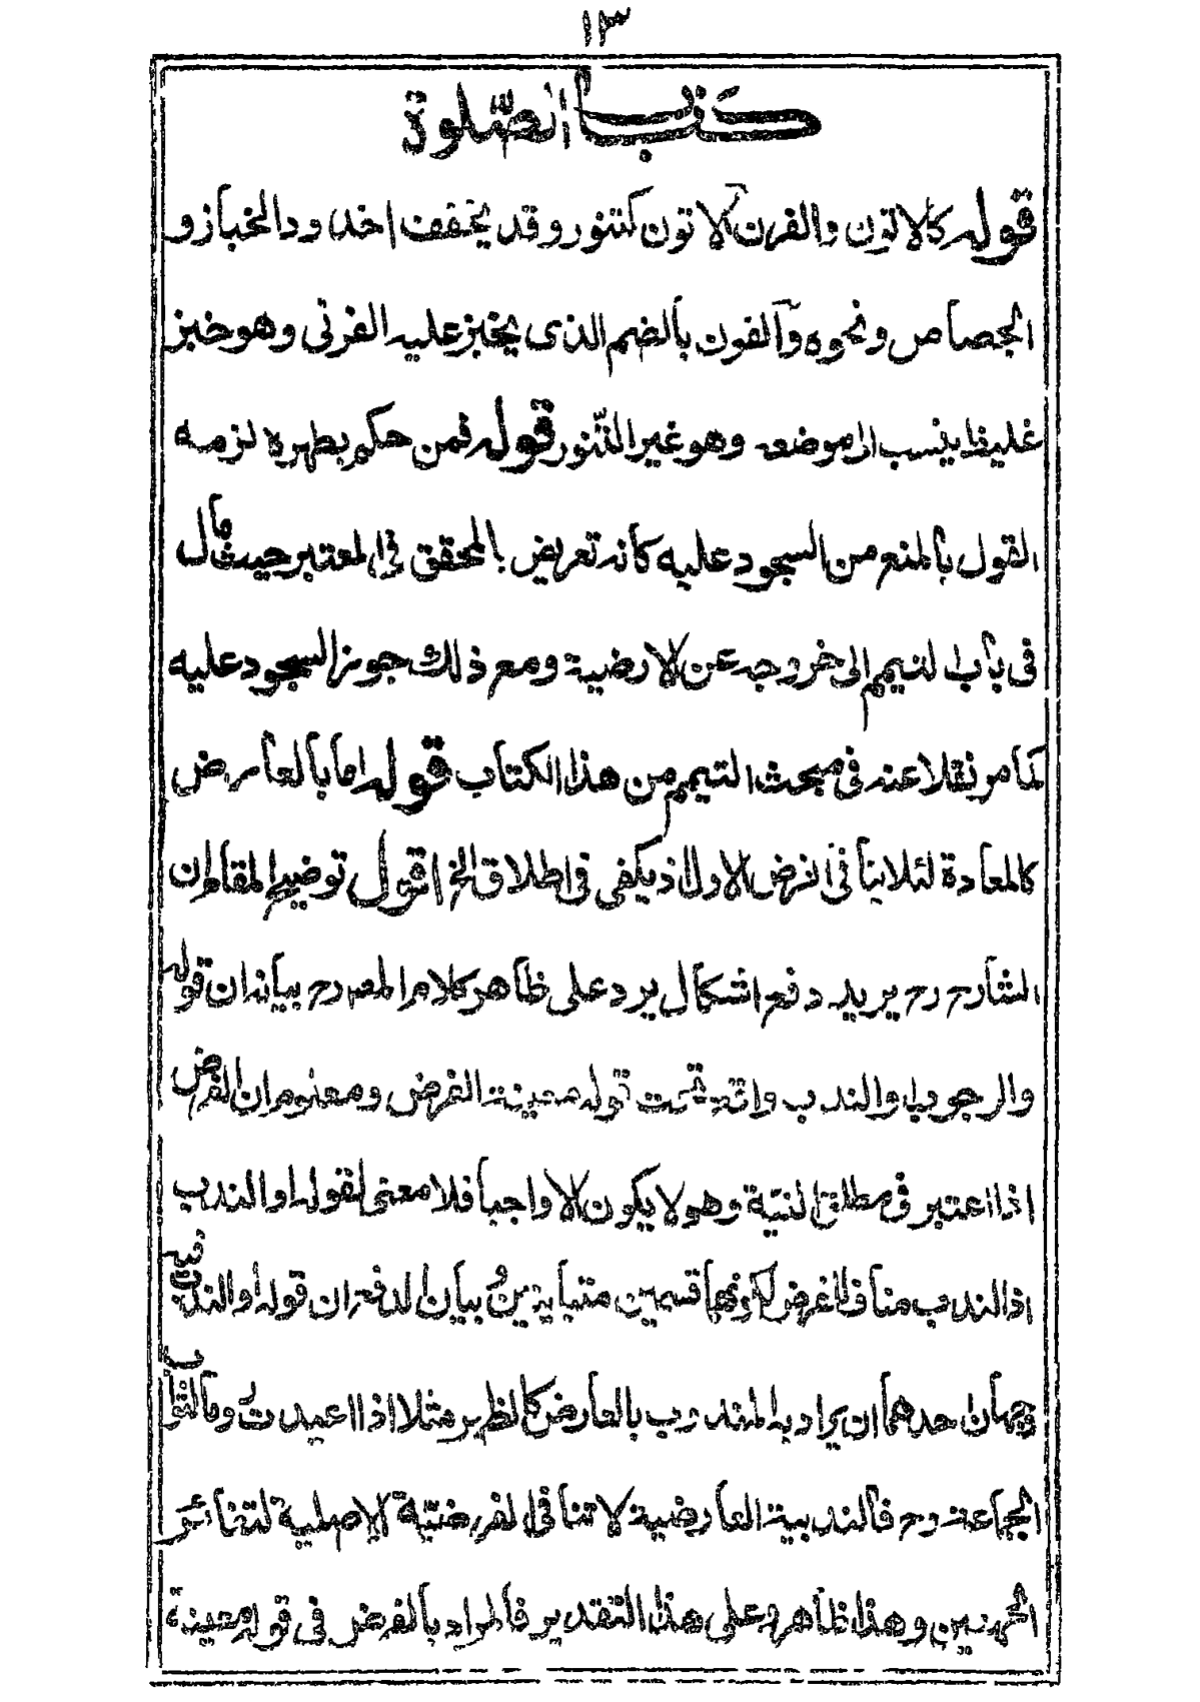 ١٣
كتاب الصّلوة
قوله كالاتون والفرن آلاتون كتنور وقد يخفف اخدود الخباز و
الجصاص ونحوه وآلفرن بالضم الذى يخبز عليه الفرنى وهو خبز
غليظ ينسب الى موضعه وهو غير التّنور قوله فمن حكم بطهره لزمه
القول بالمنع من السجود عليه كانه تعريض بالمحقق في المعتبر حيث مال
فى باب التيمم الى خروجه عن الارضية ومع ذلك جوز السجود عليه
كما مر نقلا عنه فى مبحث التيمم من هذا الكتاب قوله اما بالعارض
كالمعادة لئلا ينافى الفرض الاول اذ يكفى فى اطلاق الخ اقول توضيح المقام ان
الشارح رح يريد دفع اشكال يرد على ظاهر كلام المصه رح بيانه ان قوله
والوجوب والندب قوله معينة الفرض ومعلوم ان الفرض
اذا اعتبر فى مطلق النيّة وهو لا يكون الا واجبا فلا معنى لقوله او الندب
اذ الندب مناف للفرض لكونهما قسمين متباينين وبيان الدفع ان قوله او الندب فيه
وجهان احدهما ان يراد به المندوب بالعارض كالظهر مثلا اذا اعيدت ومالثواب
الجماعة رح فالندبية العارضية لا تنافى الفرضيّة الاصلية لتغائر
الجهتين وهذا ظاهر وعلى هذا التقدير فالمراد بالفرض فى قوله معينة